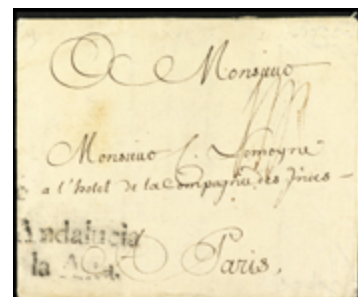 A Monsieur
Monsieur C. Lemoyne
a l'hotel de la Compagnie des Indes
Andalucia
la Alta
Paris.